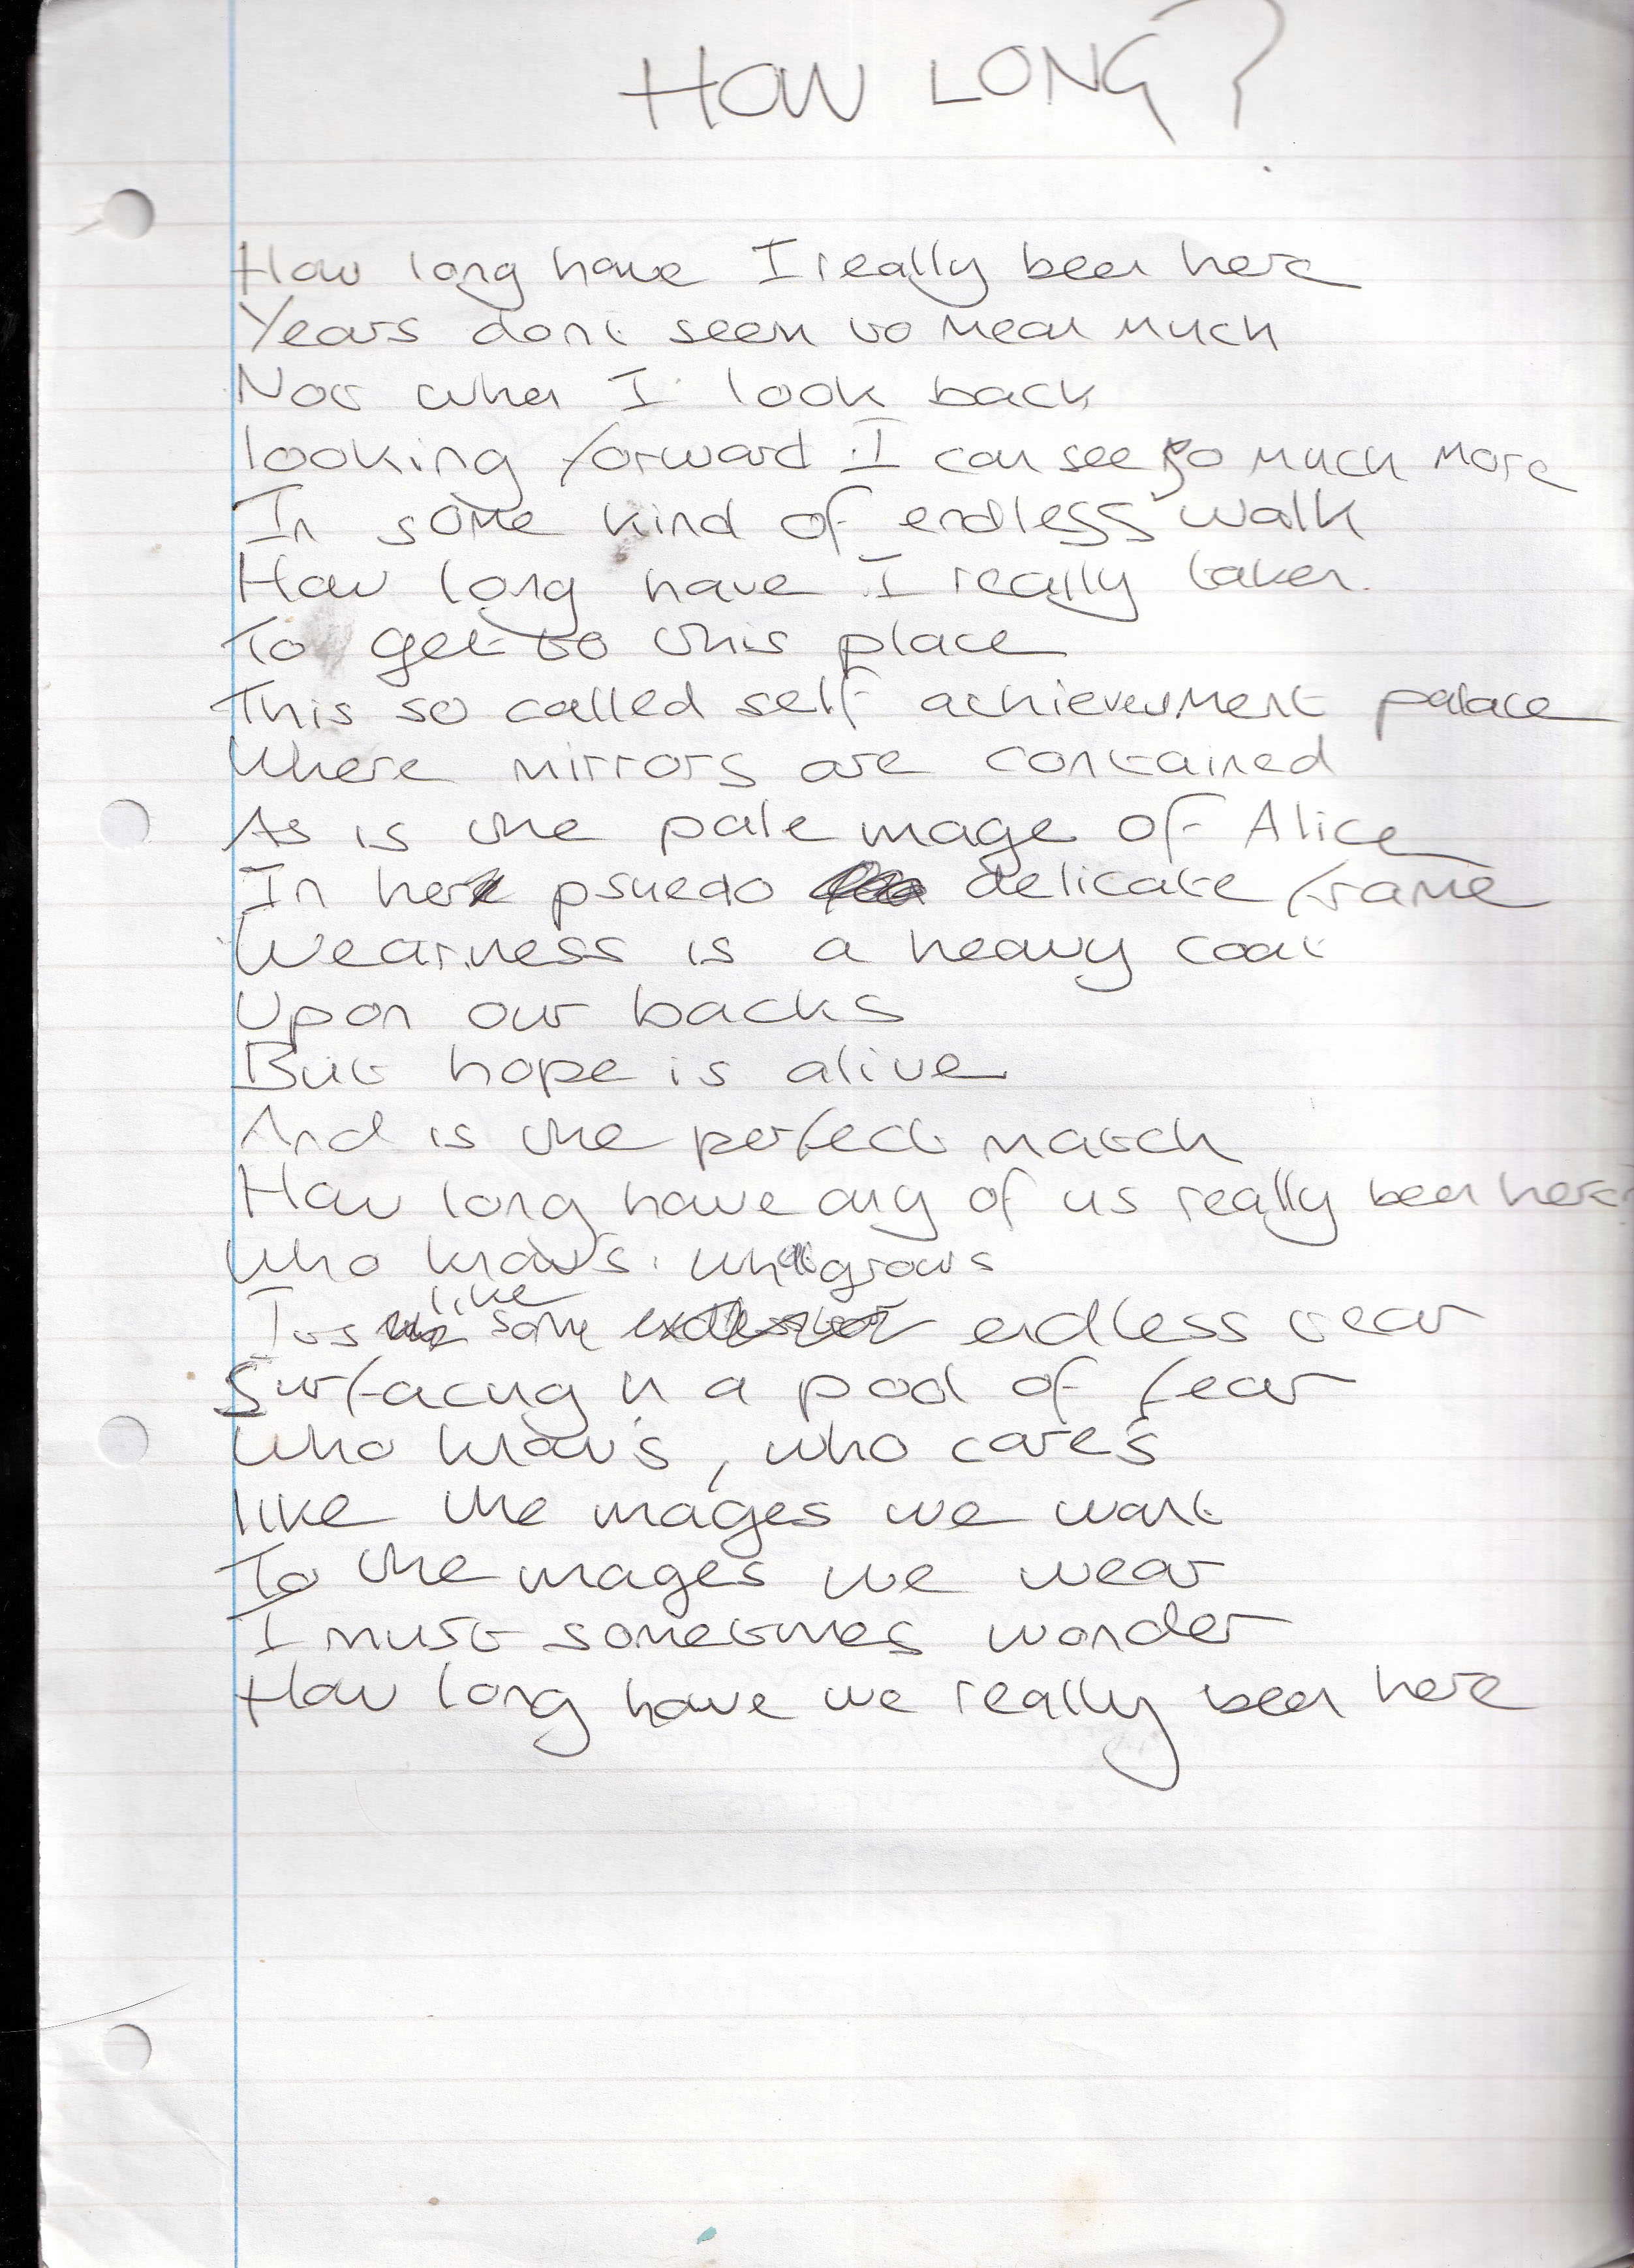 HOW LONG?
How long have I really been here
Years dont seem to mean much
Not when I look back
looking forward I can see so much more
In some kind of endless walk
How long have I really taken.
To get to this place
This so called self achievement palace
Where mirrors are contained
As is the pale image of Alice
In her psuedo delicate frame
Weariness is a heavy coat
Upon our backs
But hope is alive
And is the perfect match
How long have any of us really been here?
Who knows. What grows
Its like some endless tear
Surfacing in a pool of fear
Who knows, who cares
like the images we want
To the images we wear
I must sometimes wonder
How long have we really been here